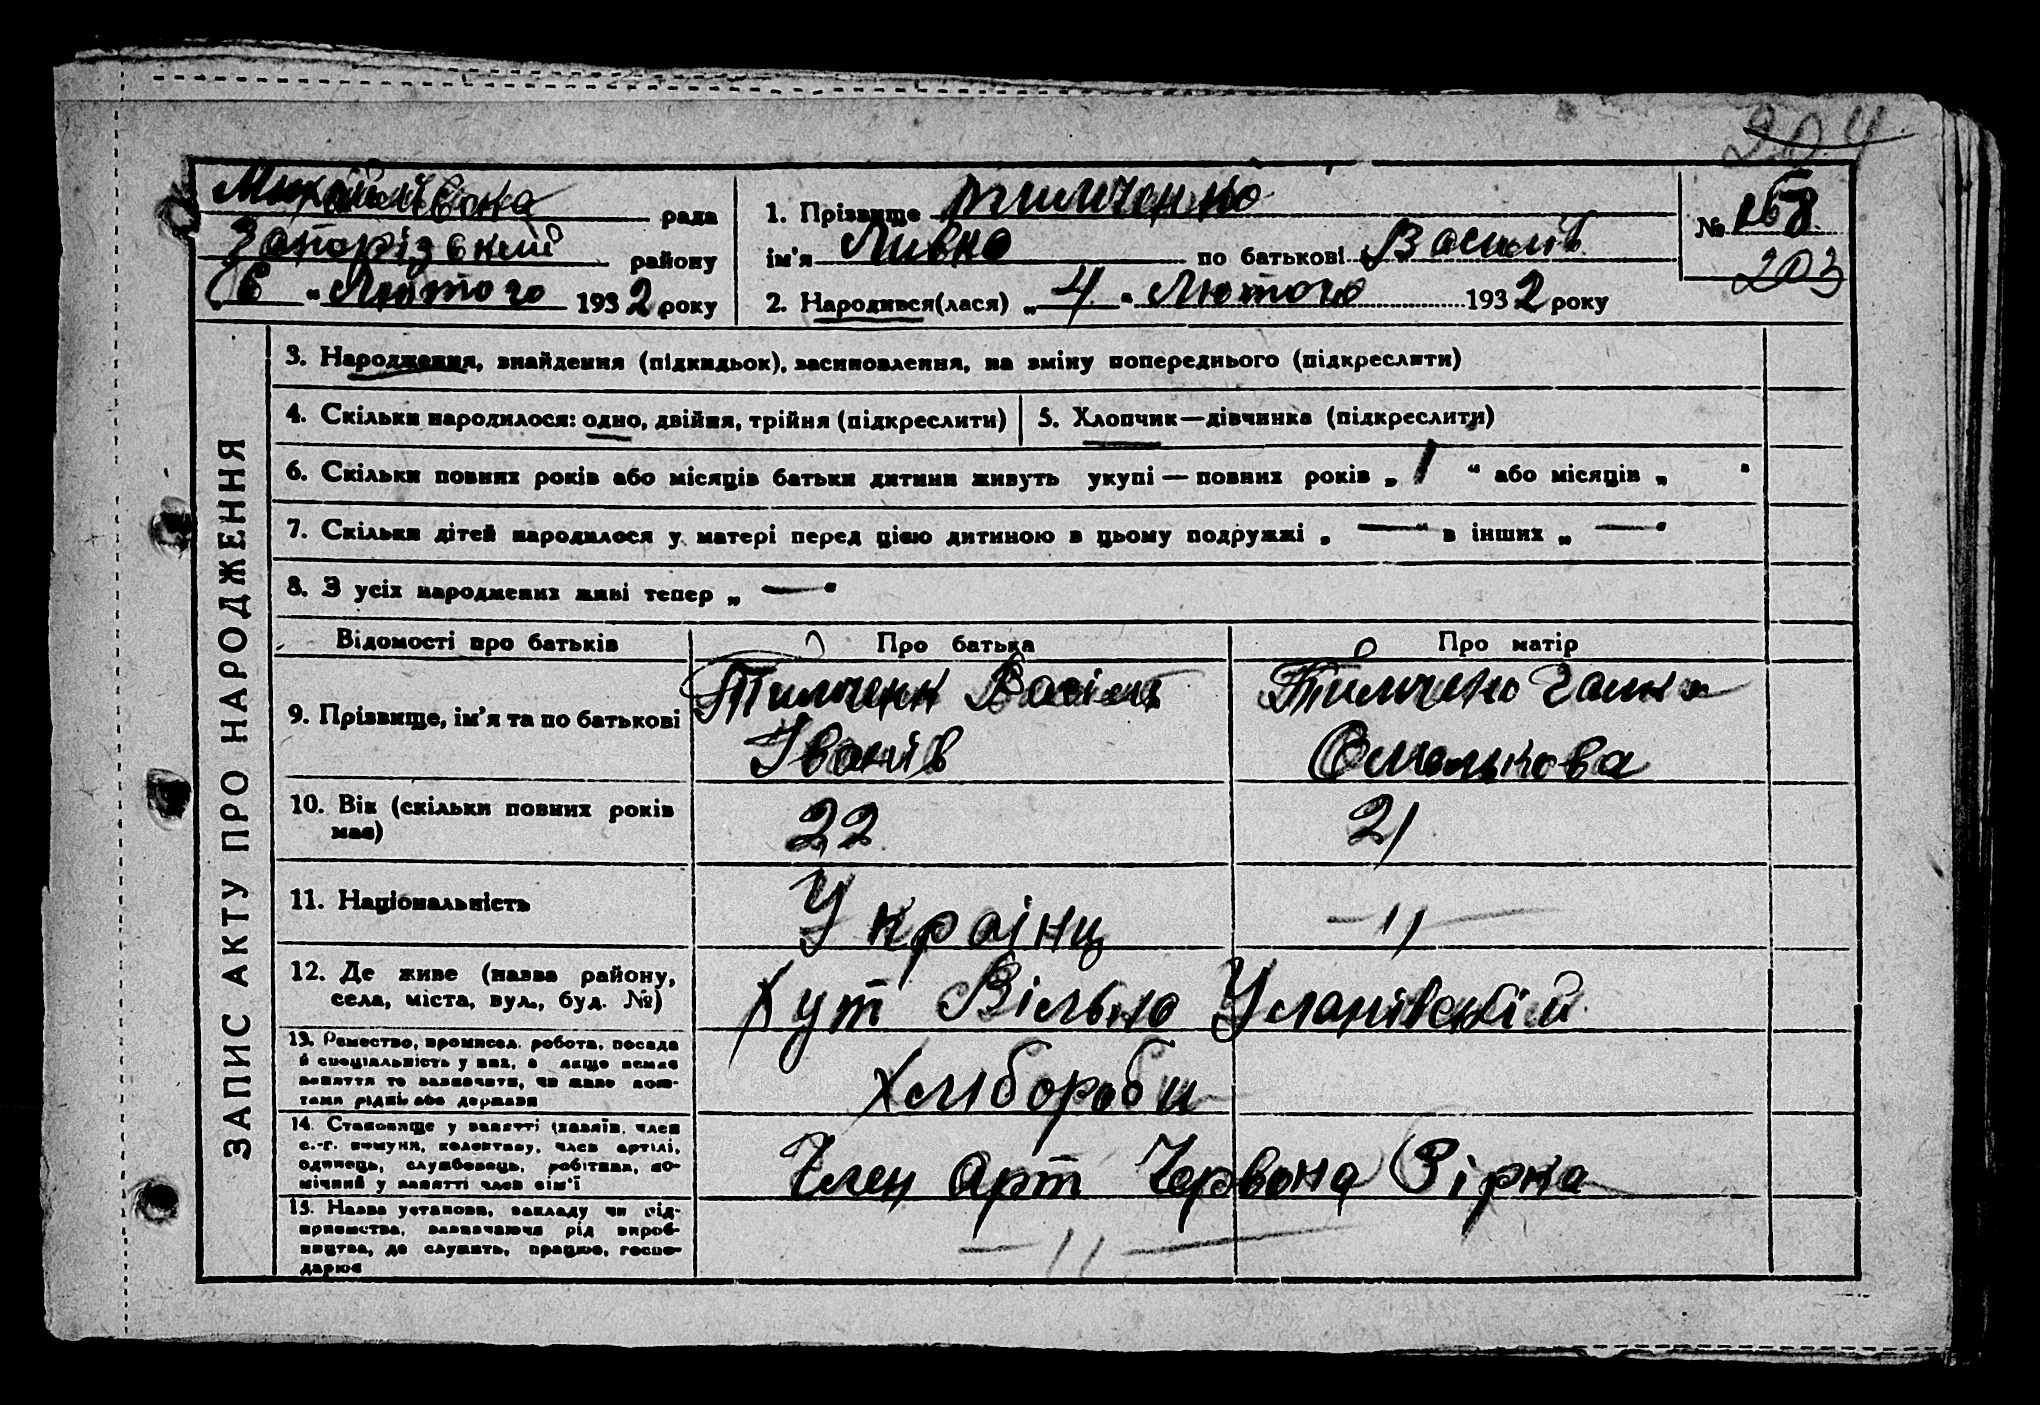 204
Михайлівска рада
Запорізький району
„6“ Лютого 1932 року
1. Прізвище Тимченко
ім'я по батькові Василів
2. Народився(лася) „4“ Лютого 1932 року
№ 168
203
ЗАПИС АКТУ ПРО НАРОДЖЕННЯ
3. Народження, знайдення (підкидьок), засиновлення, на зміну попереднього (підкреслити)
4. Скільки народилося: одно, двійня, трійня (підкреслити)
5. Хлопчик—дівчинка (підкреслити)
6. Скільки повних років або місяців батьки дитини живуть укупі — повних років „1“ або місяців „ “
7. Скільки дітей народилося у матері перед цією дитиною в цьому подружжі „—“ в інших „—“
8. З усіх народжених живі тепер „—“
Відомості про батьків Про батька Про матір
9. Прізвище, ім'я та по батькові
Тимченк Васіль
Іванів
Тимчено Галина
Омелькова
10. Вік (скільки повних років
має)
22 21
11. Національність Украінц —〃—
12. Де живе (назва району,
села, міста, вул., буд. №)
Хут Вільно Уланівскій
13. Ремество, промисел, робота, посада
й спеціальність у них, а якщо немає
заняття то зазначити, чи живе кош-
тами рідні або держави
Хлібороби
14. Становище у занятті (хазяїн, член
с.-г. комуни, колективу, член артілі,
одинець, службовець, робітник, по-
мічний у занятті член сім'ї
Член Арт Червона Зірка
15. Назва установи, закладу чи під-
приємства, зазначаючи рід вироб-
ництва, де служить, працює, госпо-
дарює
—〃—